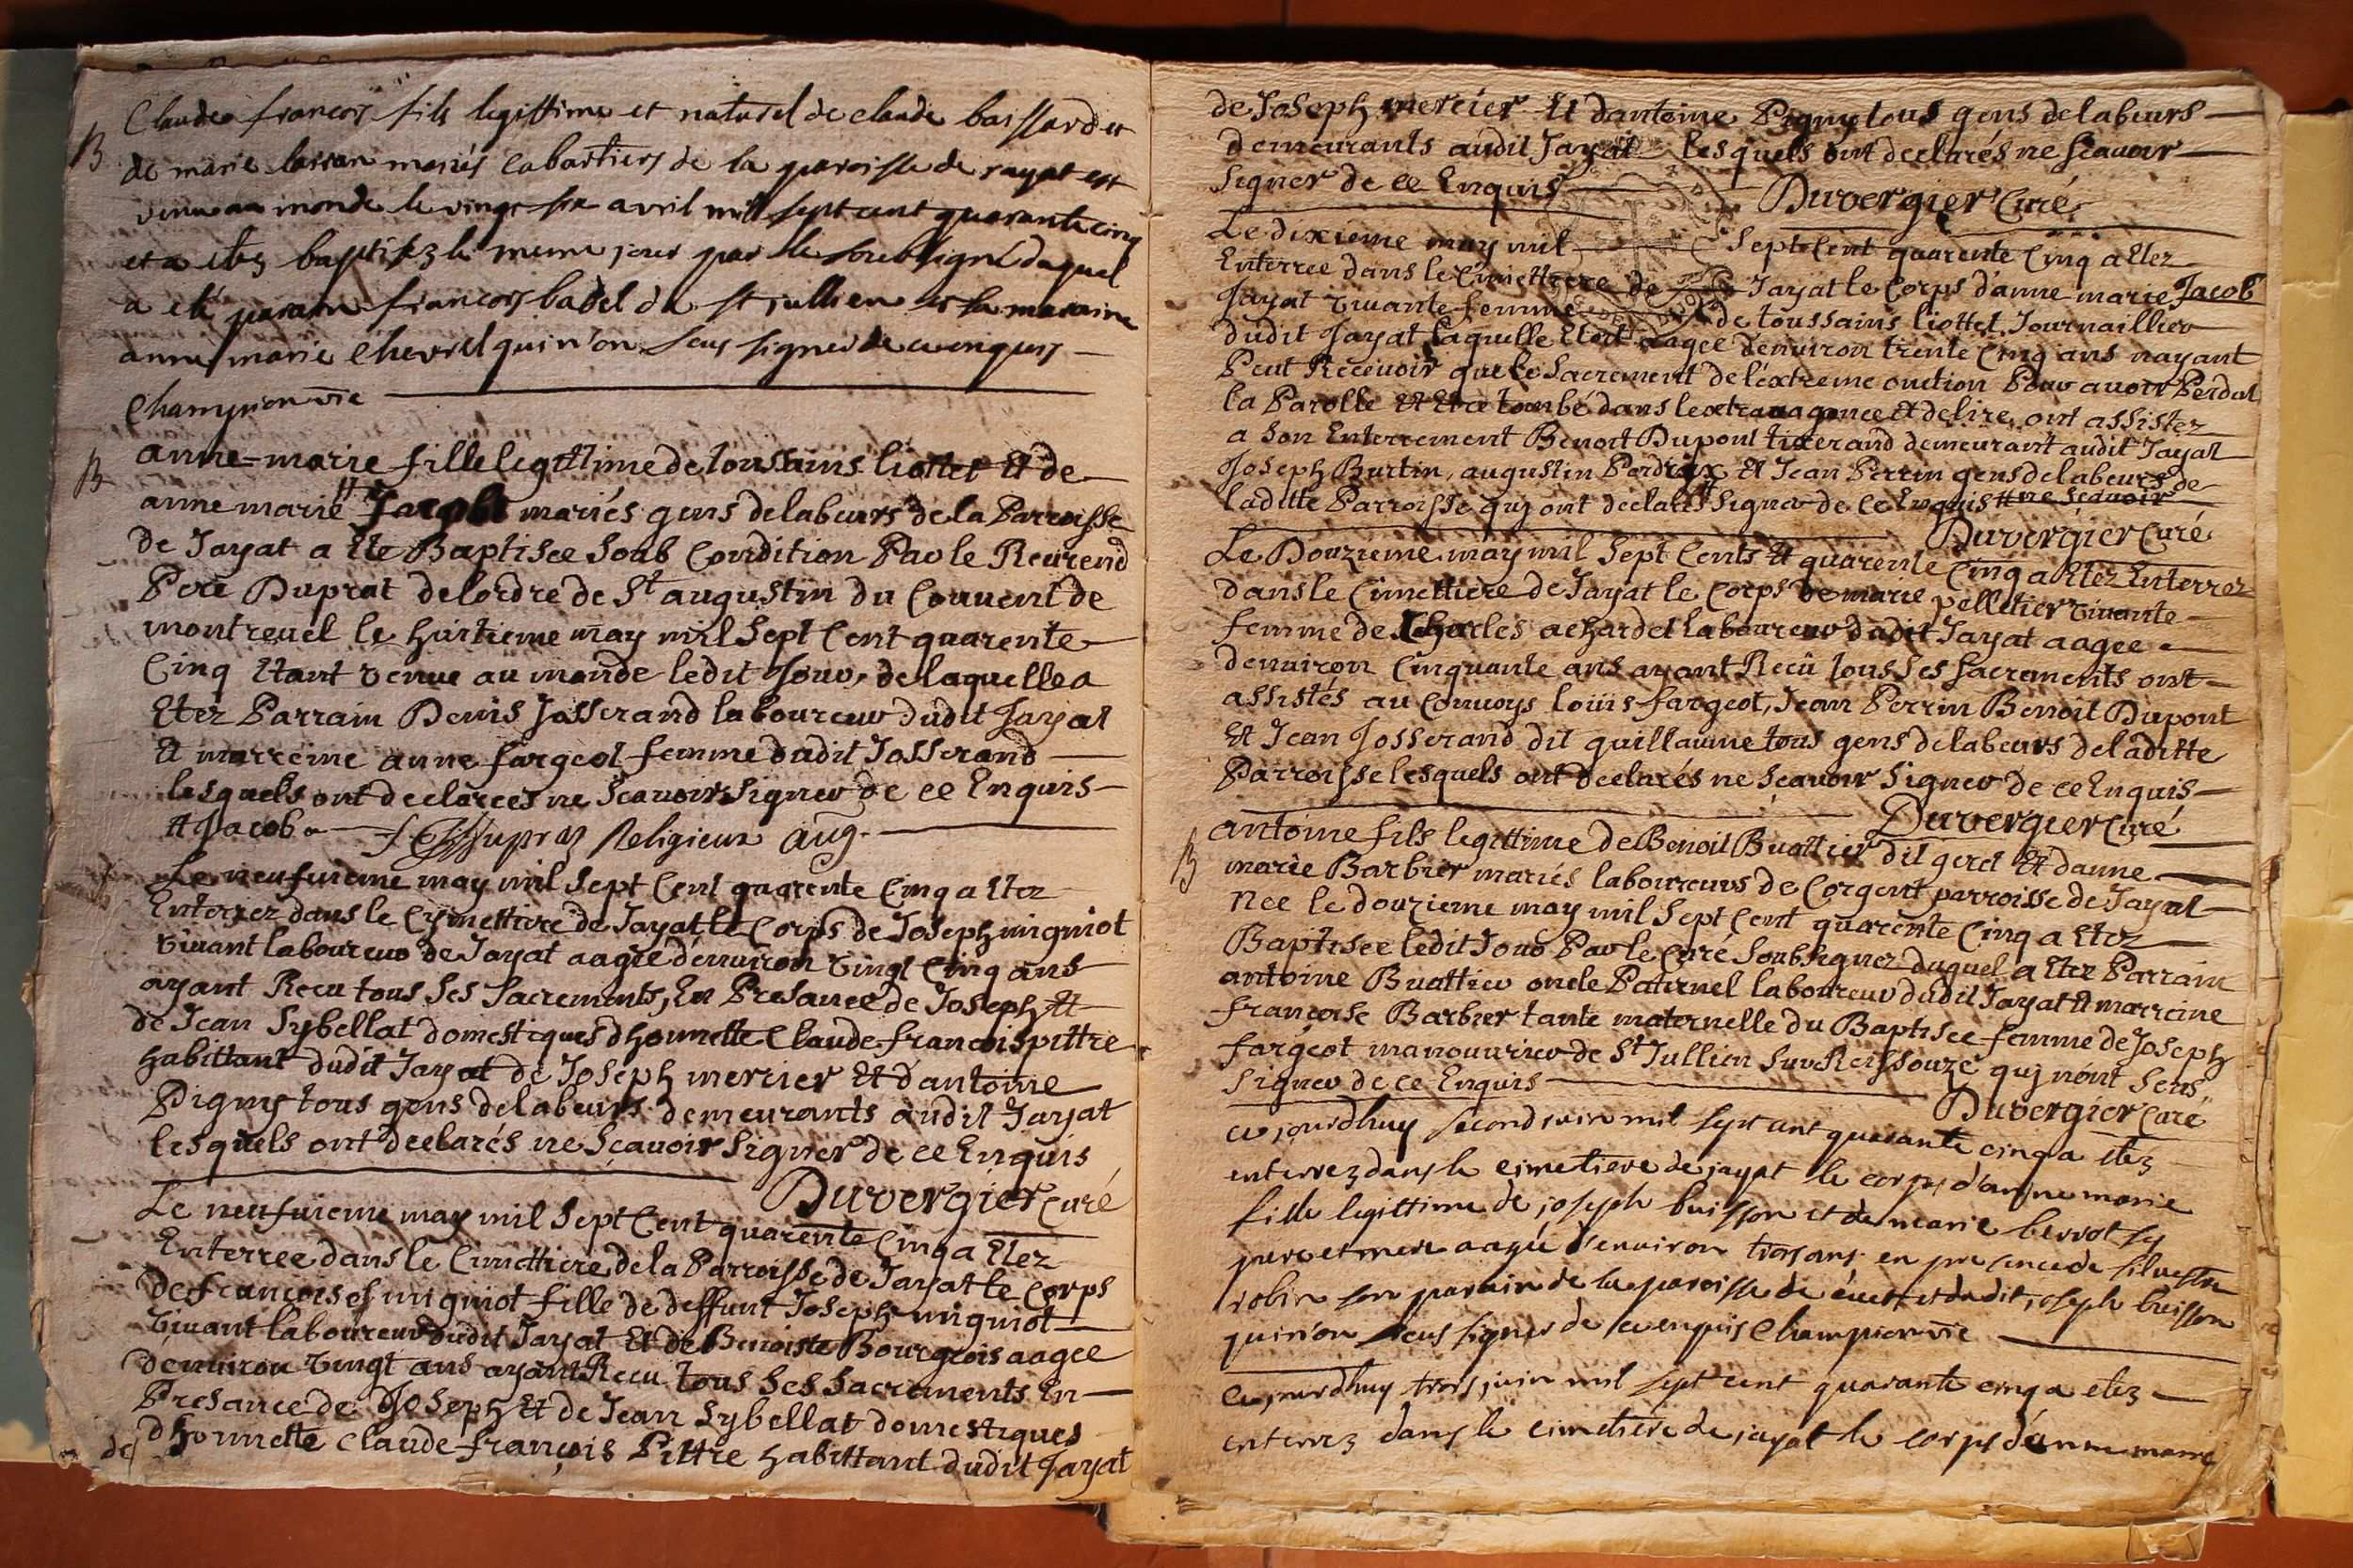 B
Claude francois fils legittime et naturel de claude baissard et
de marie mariés cabartiers de la paroisse de jayat est
venu au monde le vingt six avril mil sept cent quarante cinq
et a etez baptisez le meme jour par le soubsigné duquel
a eté parain francois badel de st jullien et la maraine
anne marie chevrel qui n'on seus signer de ce enquis
Champion vic
B
anne-marie fille legittime de toussains liottet Et de
anne marie # Jacob mariés gens delabeurs de la Parroisse
de Jayat a Ete Baptisee Soub Condition Par le Reurend
Pere Duprat delordre de St augustin du Couuent de
montreuel le huitieme may mil Sept Cent quarente
Cinq Etant venue au monde ledit Jour, de laquelle a
Etez Parrain Denis Josserand laboureur dudit Jayat
Et marreine anne fargeot femme dudit Josserand
lesquels ont declarees ne Scauoir Signer de ce Enquis
# Jacob f Dupraz Religieux aug.
Le neufuieme may mil Sept Cent quarente Cinq a Etez
Enterrez dans le Cymettiere de Jayat le Corps de Joseph migniot
viuant laboureur de Jayat aagée d'enuiron vingt Cinq ans
ayant Recu tous Ses Sacrements, En Presance de Joseph Et
de Jean Sybellat domestiques dhonnette Claude-francois pittre
habittant dudit Jayat de Joseph mercier Et d'antoine
Pigny tous gens delabeurs demeurants audit Jayat
lesquels ont declarés ne Scauoir Signer de ce Enquis
Duvergier Curé
Le neufuieme may mil Sept Cent quarente Cinq a Etez
Enterree dans le Cimettiere de la Parroisse de Jayat le Corps
de francoise migniot fille de deffunt Joseph migniot
viuant laboureur dudit Jayat Et de Benoiste Bourgeois aagee
denuiron vingt ans ayant Recu tous Ses Sacrements En
Presance de Joseph Et de Jean Sybellat domestiques
dhonnette Claude-françois Pittre habittant dudit Jayat
de
de Joseph mercier Et dantoine Pigny tous gens delabeurs
demeurants audit Jayat lesquels ont declarés ne Scauoir
Signer de ce Enquis Duvergier Curé
Le dixieme may mil Sept Cent quarente Cinq a Etez
Enterree dans le Cimettiere de Jayat le Corps d'anne marie Jacob
Jayat viuante femme de toussains liottet Journaillier
dudit Jayat laquelle Etoit aagee denuiron trente Cinq ans nayant
Peut Receuoir que le Sacrement de l'extreme onction Pour auoir Perdut
la Parolle Et Etre tombé dans lextrauagance et delire, ont assistez
a Son Enterrement Benoit Dupont tixerand demeurant audit Jayat
Joseph Burtin, augustin Perdrix Et Jean Perrin gens delabeurs de
laditte Parroisse quj ont declarés # Signer de Ce Enquis # ne Scauoir
Duvergier Curé
Le Douzieme may mil Sept Cents Et quarente Cinq a Etez Enterrez
dans le Cimettiere de Jayat le Corps de marie pelletier viuante
femme de Charles achardet laboureur dudit Jayat aagee
denuiron Cinquante ans ayant Recû tous Ses Sacrements ont
assistés au Conuoys loüis fargeot, Jean Perrin Benoit Dupont
Et Jean Josserand dit guillaume tous gens delabeurs de laditte
Parroisse lesquels ont declarés ne Scauoir Signer de ce Enquis
Duvergier Curé
B
antoine fils legittime de Benoit Buattier dit geret Et danne
marie Barbier mariés laboureurs de Corgent parroisse de Jayat
Nee le douzieme may mil Sept Cent quarente Cinq a Etez
Baptisee ledit Jour Par le Curé Soubsignez duquel a Etez Parrain
antoine Buattier oncle Paternel laboureur dudit Jayat Et marreine
francoise Barbier tante maternelle du Baptisee femme de Joseph
fargeot manouurier de St Jullien Sur Reissouze quj nont Seus
Signer de ce Enquis Duvergier Curé
ce jourdhuy second juin mil sept cent quarante cinq a etez
enterrez dans le cimetiere de jayat le corps d'anne marie
fille legittime de joseph buisson et de marie berrot ses
pere et mere aagée d'enuiron trois ans en presence de siluestre
robin son parain de la paroisse de et dudit joseph buisson
qui n'on seus signer de ce enquis Champion vic
ce jourdhuy trois juin mil sept cent quarante cinq a etez
enterrez dans le cimetiere de jayat le corps d'anne marie